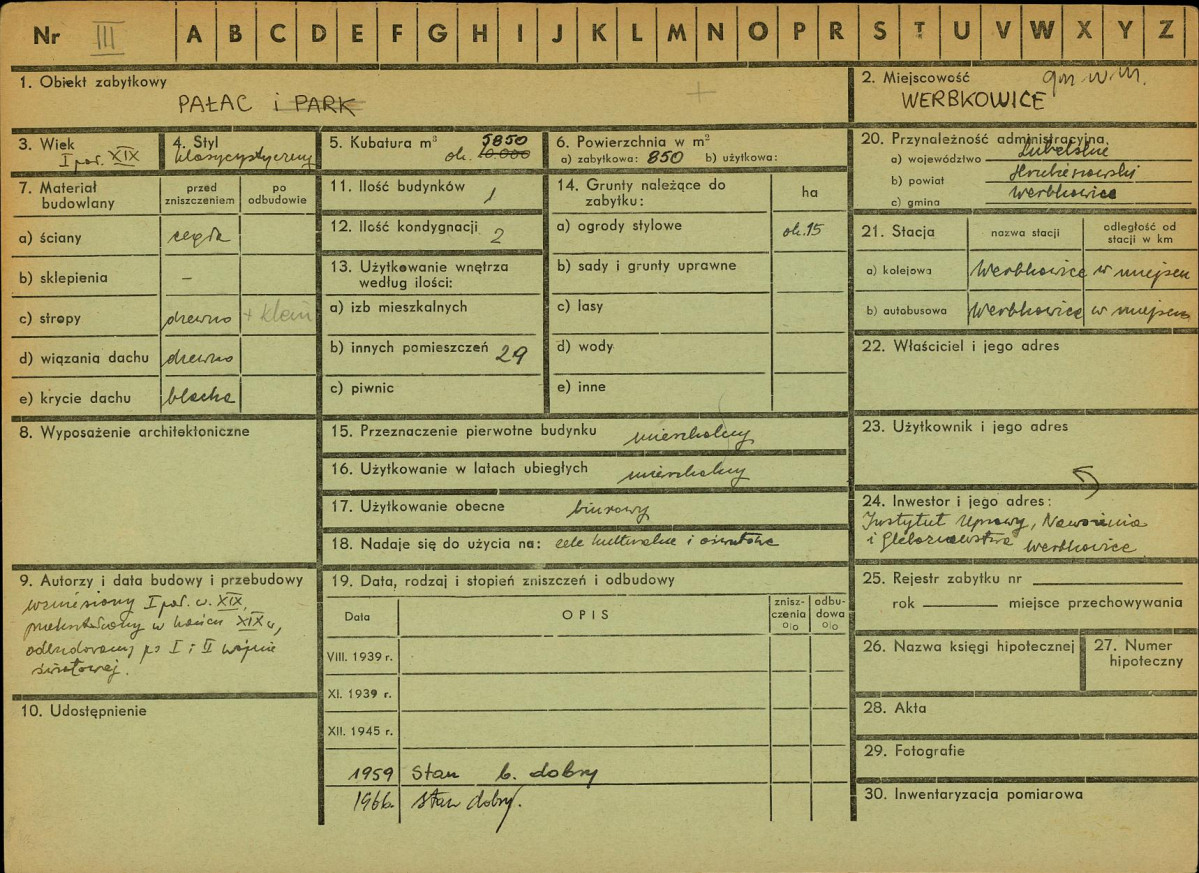 Nr III A B C D E F G H I J K L M N O P R S T U V W X Y Z
1. Obiekt zabytkowy
PAŁAC i PARK
2. Miejscowość gm w m.
WERBKOWICE
3. Wiek
I poł. XIX
4. Styl
klasycystyczny
5. Kubatura m³ 5850
ok. 10.000
6. Powierzchnia w m²
a) zabytkowa: 850 b) użytkowa:
20. Przynależność administracyjna
a) województwo Lubelskie
b) powiat Hrubieszowski
c) gmina Werbkowice
7. Materiał budowlany
przed zniszczeniem
po odbudowie
a) ściany cegła
b) sklepienia –
c) stropy drewno + klein
d) wiązania dachu drewno
e) krycie dachu blacha
11. Ilość budynków 1
12. Ilość kondygnacji 2
13. Użytkowanie wnętrza
według ilości:
a) izb mieszkalnych
b) innych pomieszczeń 29
c) piwnic
14. Grunty należące do
zabytku:
ha
a) ogrody stylowe ok. 15
b) sady i grunty uprawne
c) lasy
d) wody
e) inne
21. Stacja
nazwa stacji
odległość od
stacji w km
a) kolejowa Werbkowice w miejscu
b) autobusowa Werbkowice w miejscu
22. Właściciel i jego adres
8. Wyposażenie architektoniczne
15. Przeznaczenie pierwotne budynku mieszkalny
16. Użytkowanie w latach ubiegłych mieszkalny
17. Użytkowanie obecne biurowy
18. Nadaje się do użycia na: cele kulturalne i oświatowe
23. Użytkownik i jego adres
24. Inwestor i jego adres:
Instytut Uprawy, Nawożenia
i Gleboznawstwa Werbkowice
9. Autorzy i data budowy i przebudowy
wzniesiony I poł. w. XIX,
przekształcony w końcu XIX w,
odbudowany po I i II wojnie
światowej.
19. Data, rodzaj i stopień zniszczeń i odbudowy
Data
OPIS
znisz-
czenia
%
odbu-
dowa
%
VIII. 1939 r.
XI. 1939 r.
XII. 1945 r.
1959 Stan b. dobry
1966. stan dobry.
25. Rejestr zabytku nr
rok miejsce przechowywania
26. Nazwa księgi hipotecznej
27. Numer
hipoteczny
10. Udostępnienie
28. Akta
29. Fotografie
30. Inwentaryzacja pomiarowa